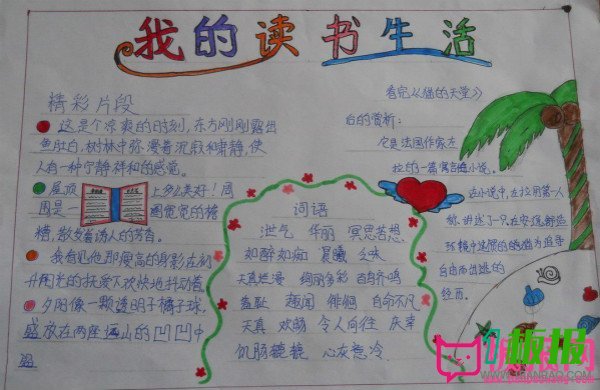 我的读书生活
精彩片段
这是个凉爽的时刻,东方刚刚露出
鱼肚白,树林中弥漫着沉寂和肃静,使
人有一种宁静祥和的感觉。
屋顶上多么美好!周
围是一圈宽宽的檐
槽,散发着诱人的芳香。
我看见他那瘦高的身影在初
升阳光的抚爱下欢快地抖动着
夕阳像一颗透明子橘子球,
盛放在两座远山的凹凹中
词语
洪气 华丽 冥思苦想
如醉如痴 晨曦 乏味
天真烂漫 绚丽多彩 百鸟齐鸣
羞耻 趣闻 徘徊 自命不凡
天真 欢萌 令人向往 庆幸
饥肠辘辘 心灰意冷
看完《猫的天堂》
后的赏析:
它是法国作家左
拉的一篇寓言体小说。
在小说中,左拉用第一人
称讲述了一只在安逸舒适
环境中的猫为追寻
自由而出逃的
经历。
板报
WWW.BANBAO.COM